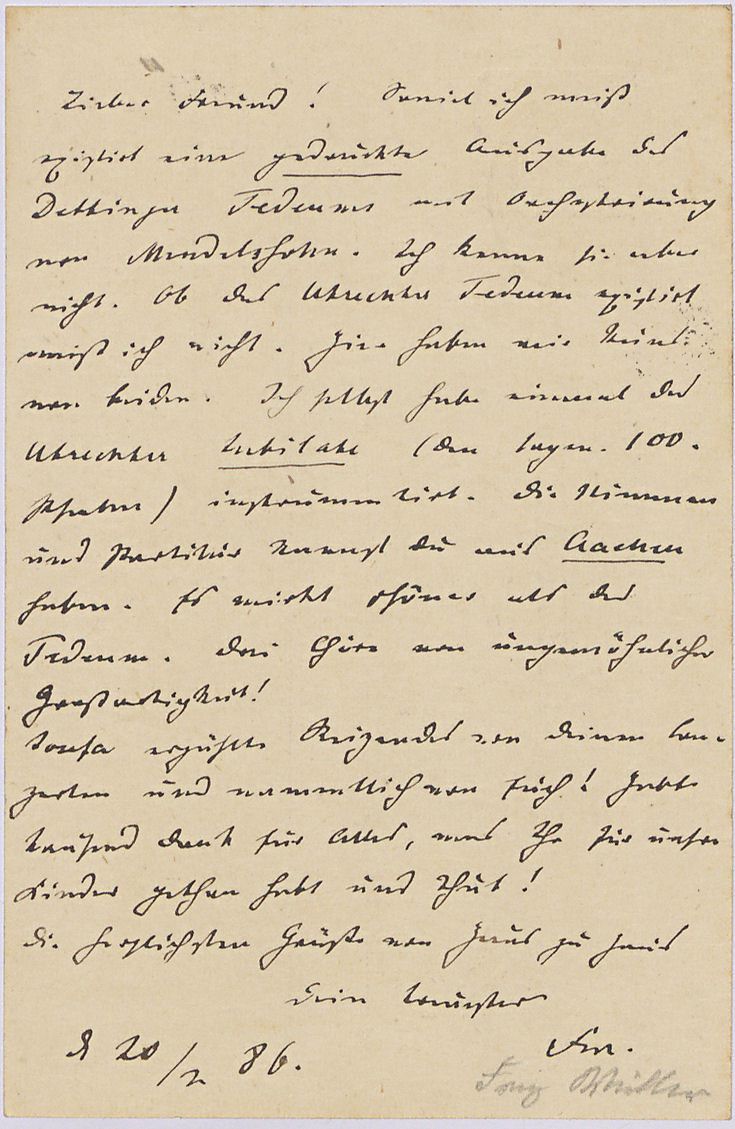 Lieber Freund! Soviel ich weiß
existirt eine gedruckte Ausgabe des
Dettinger Tedeums mit Orchestrirung
von Mendelssohn. Ich kenne sie aber
nicht. Ob das Utrechter Tedeum existirt
weiß ich nicht. Hier haben wir keins
von beiden. Ich selbst habe einmal das
Utrechter Jubilate (den sogen. 100.
Psalm) instrumentirt. Die Stimmen
und Partitur kannst Du aus Aachen
haben. Es wirkt schöner als das
Tedeum. Drei Chöre von ungewöhnlicher
Großartigkeit!
erzählte Reizendes von Deinen Con-
zerten und namentlich von Euch! Habt
tausend Dank für Alles, was Ihr für unsre
Kinder gethan habt und thut!
Die herzlichsten Grüße von Haus zu Haus
Dein treuester
20/2 86. Fw.
Wüllner